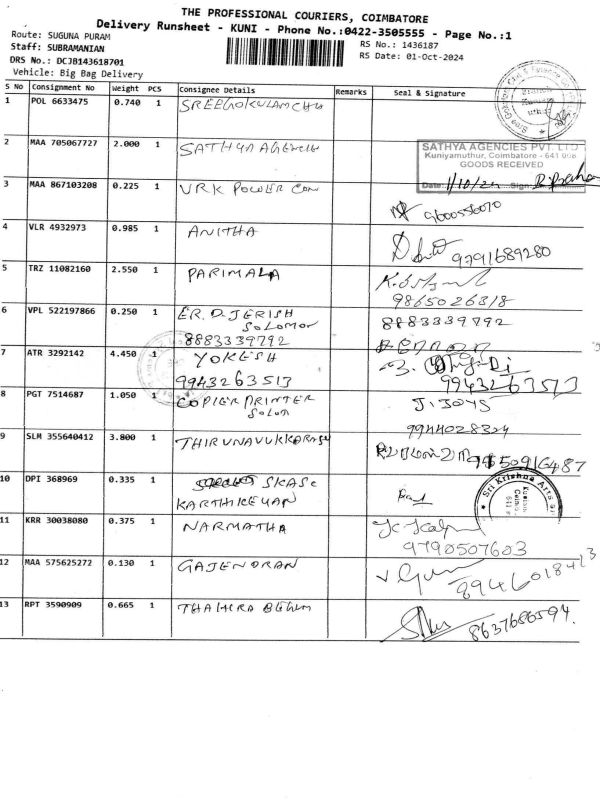 THE PROFESSIONAL COURIERS, COIMBATORE
Delivery Runsheet - KUNI - Phone No.:0422-3505555 - Page No.:1
Route: SUGUNA PURAM
RS No.: 1436187
Staff: SUBRAMANIAN
RS Date: 01-Oct-2024
DRS No.: DCJB143618701
Vehicle: Big Bag Delivery
S No Consignment No Weight PCS Consignee Details Remarks Seal & Signature
1 POL 6633475 0.740 1 SREEGOKULAMCHU
2 MAA 705067727 2.000 1 SATHYA AGENCIE
SATHYA AGENCIES PVT. LTD
Kuniyamuthur, Coimbatore - 641 008
GOODS RECEIVED
Date: 1/10/24 Sign:
3 MAA 867103208 0.225 1 VRK POWER CON
9600556070
4 VLR 4932973 0.985 1 ANITHA
9791689280
5 TRZ 11082160 2.550 1 PARIMALA
9865026318
6 VPL 522197866 0.250 1 ER. D. JERISH
SOLOMON
8883339792 8883339792
7 ATR 3292142 4.450 1 YOKESH
9943263513 9943263513
8 PGT 7514687 1.050 1 COPIER PRINTER
SOLUT J. JOYS
9944028324
9 SLM 355640412 3.800 1 THIRUNAVUKKORASU
10 DPI 368969 0.335 1 SKASC
KARTHIKEYAN
Sri Krishna Arts
11 KRR 30038080 0.375 1 NARMATHA
9790507603
12 MAA 575625272 0.130 1 GAJENDRAN
8946018413
13 RPT 3590909 0.665 1 THAHIRA BEGUM
8637686594